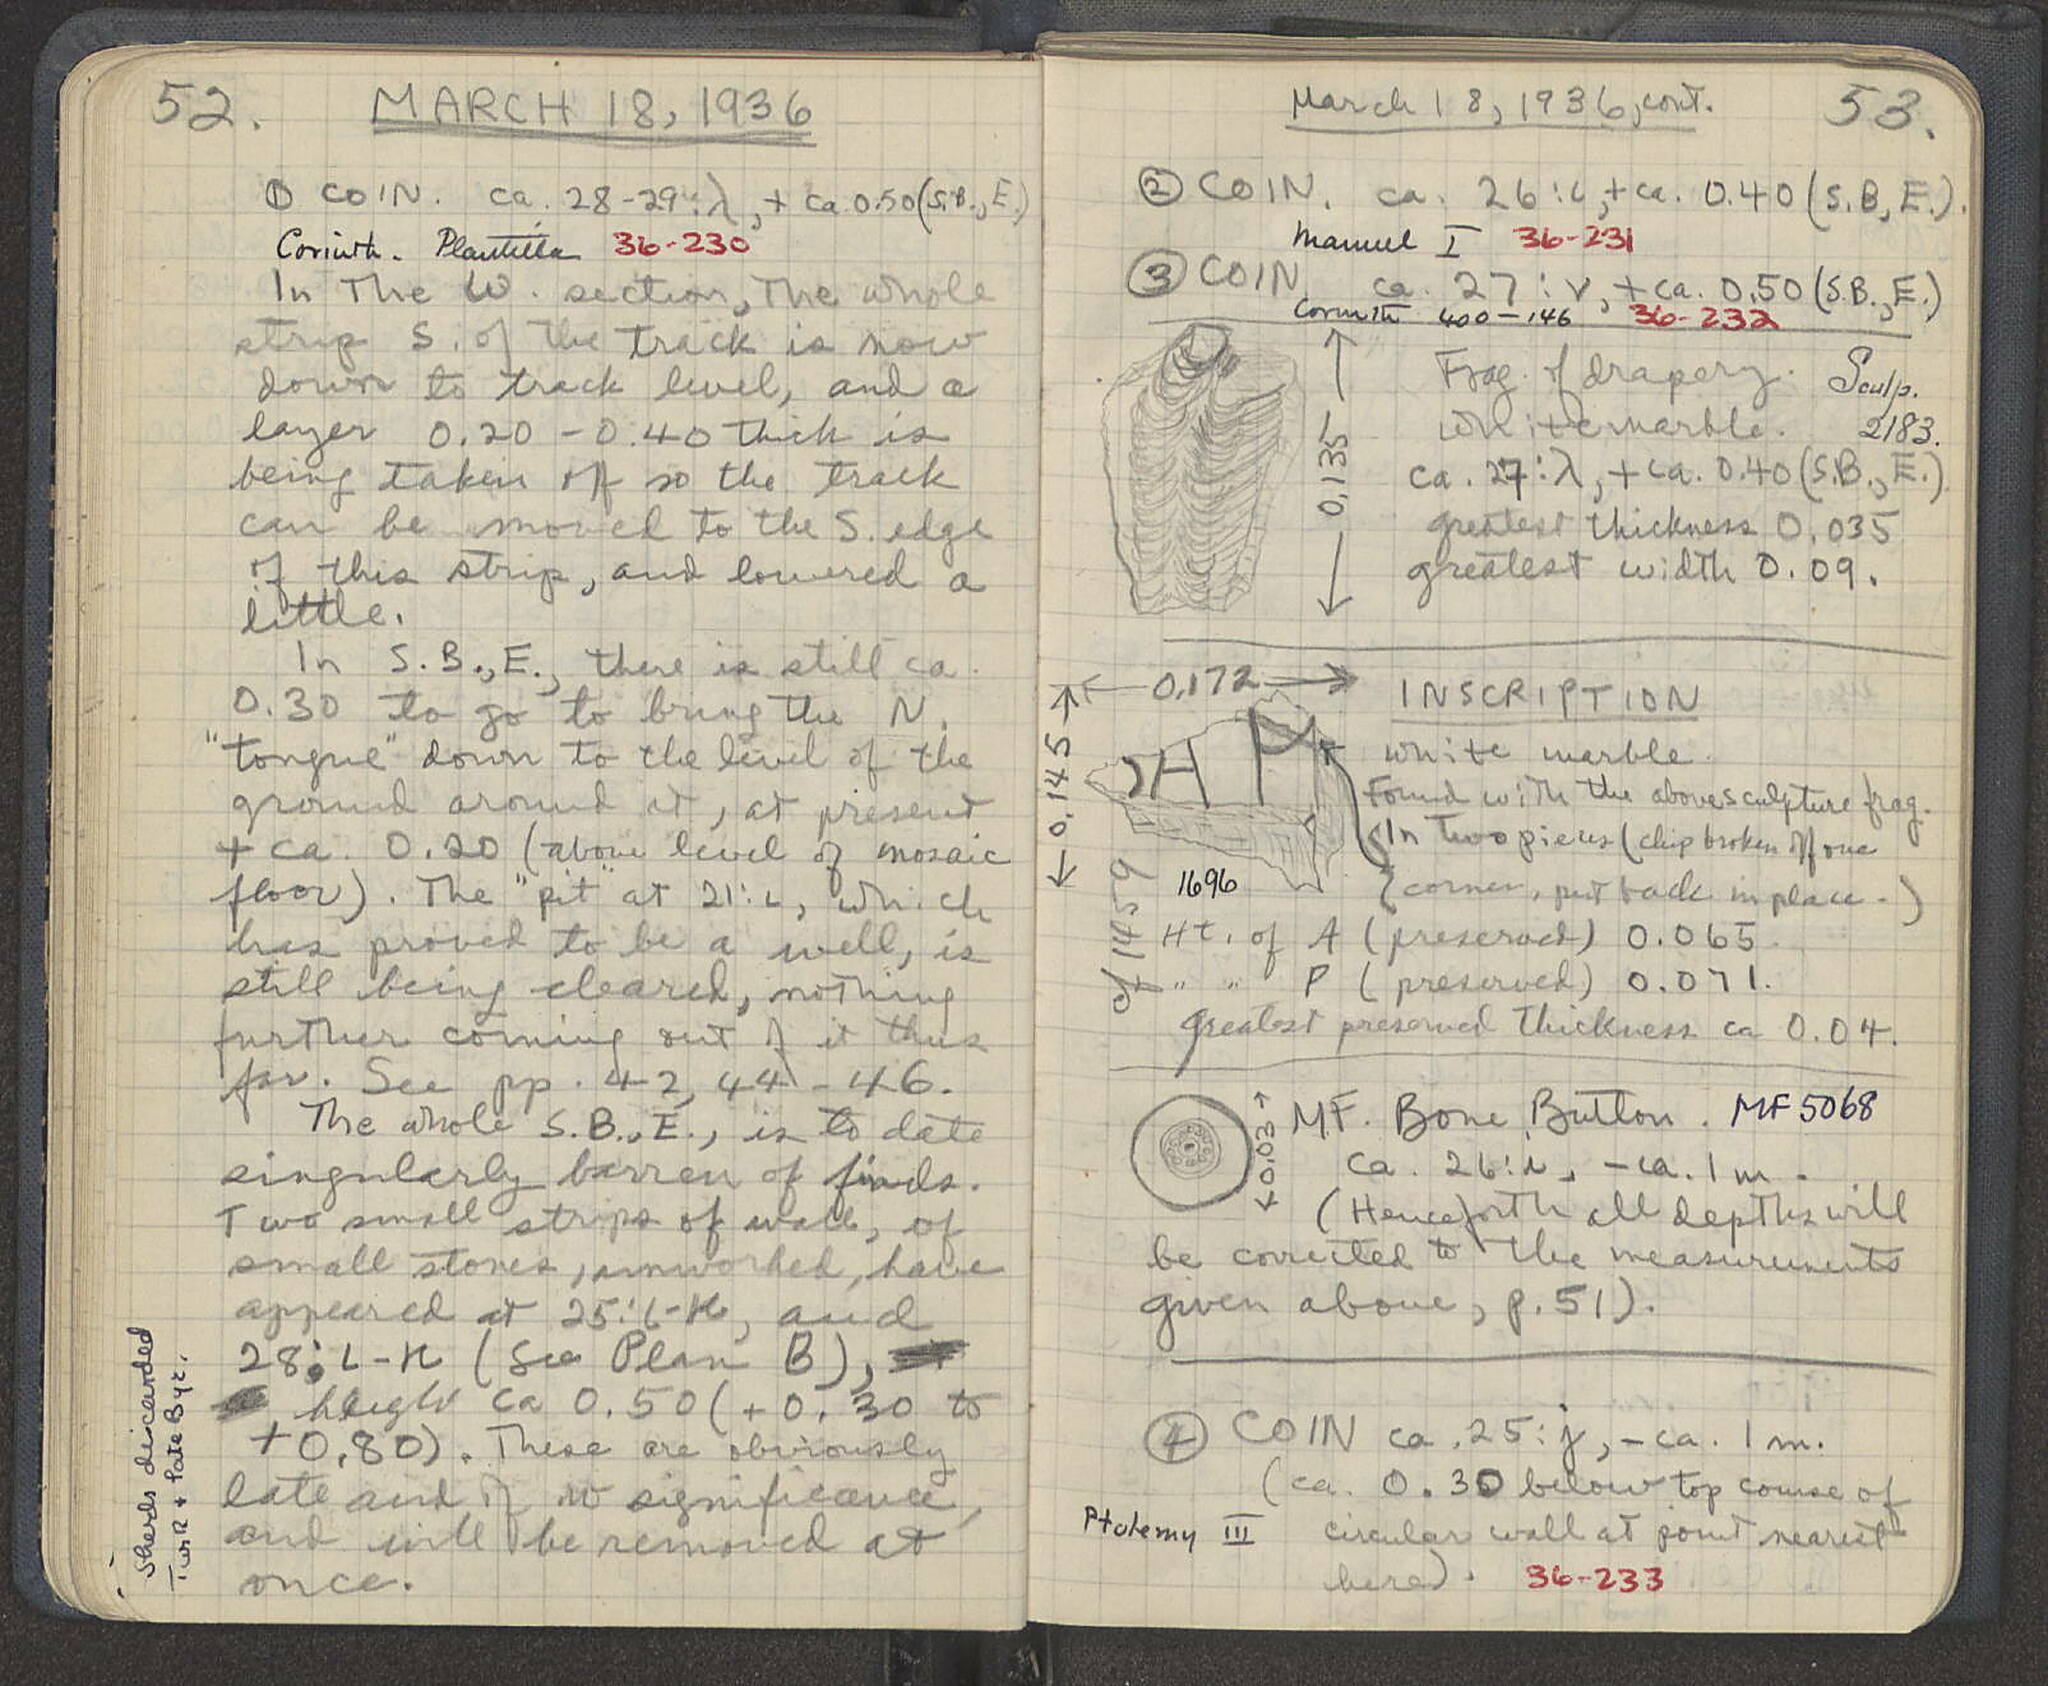 52. MARCH 18, 1936
① COIN. ca. 28-29:λ, + ca 0.50 (S.B., E.)
Corinth. Plautilla 36-230
In the W. section, the whole
strip S. of the track is now
down to track level, and a
layer 0.20 - 0.40 thick is
being taken off so the track
can be moved to the S. edge
of this strip, and lowered a
little.
In S.B., E., there is still ca.
0.30 to go to bring the N.
"tongue" down to the level of the
ground around it, at present
+ ca. 0.20 (above level of mosaic
floor). The "pit" at 21:ι, which
has proved to be a well, is
still being cleared, nothing
further coming out of it thus
far. See pp. 42, 44 - 46.
The whole S.B., E., is to date
singularly barren of finds.
Two small strips of wall, of
small stones, unworked, have
appeared at 25:ι-κ, and
28:ι-κ (See Plan B),
height ca 0.50 (+0.30 to
+0.80). These are obviously
late and of no significance,
and will be removed at
once.
Sherds discarded
Turk + late Byz.
March 18, 1936, cont. 53.
② COIN. ca. 26:ι, + ca. 0.40 (S.B, E.).
Manuel I 36-231
③ COIN ca. 27:ν, + ca. 0.50 (S.B., E.)
Corinth 400-146 36-232
Frag. of drapery. Sculp.
White marble. 2183.
ca. 27:λ, + ca. 0.40 (S.B., E.)
0.135
greatest thickness 0.035
greatest width 0.09.
0.172 INSCRIPTION
0.145
White marble.
Found with the above sculpture frag.
In two pieces (chip broken off one
corner, put back in place.)
Α Ρ
1696
cf 1459
Ht. of A (preserved) 0.065.
" " P (preserved) 0.071.
greatest preserved thickness ca 0.04.
0.03
MF. Bone Button. MF 5068
ca. 26:ι, - ca. 1 m.
(Henceforth all depths will
be corrected to the measurements
given above, p. 51).
④ COIN ca. 25:j, - ca. 1 m.
(ca. 0.30 below top course of
Ptolemy III circular wall at point nearest
here). 36-233